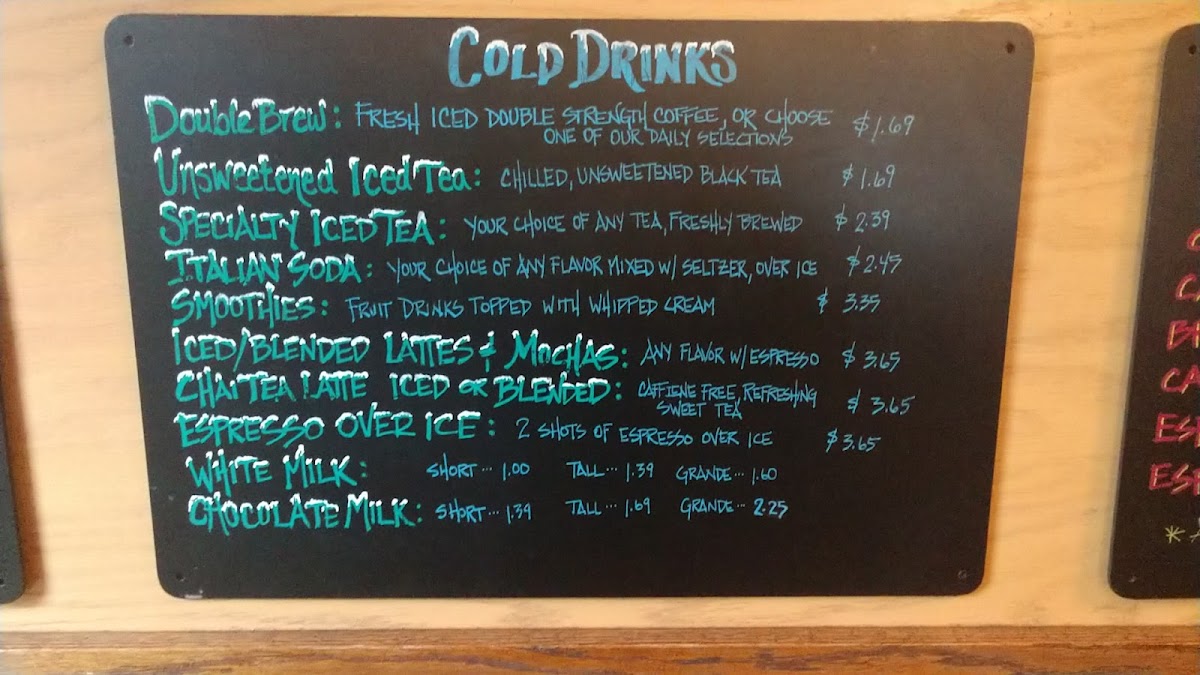 COLD DRINKS
Double Brew: FRESH ICED DOUBLE STRENGTH COFFEE, OR CHOOSE $1.69
ONE OF OUR DAILY SELECTIONS
Unsweetened Iced Tea: CHILLED, UNSWEETENED BLACK TEA $1.69
SPECIALTY ICED TEA: YOUR CHOICE OF ANY TEA, FRESHLY BREWED $2.39
ITALIAN SODA: YOUR CHOICE OF ANY FLAVOR MIXED W/ SELTZER, OVER ICE $2.45
SMOOTHIES: FRUIT DRINKS TOPPED WITH WHIPPED CREAM $3.35
ICED/BLENDED LATTES & MOCHAS: ANY FLAVOR W/ ESPRESSO $3.65
CHAI TEA LATTE ICED OR BLENDED: CAFFIENE FREE, REFRESHING $3.65
SWEET TEA
ESPRESSO OVER ICE: 2 SHOTS OF ESPRESSO OVER ICE $3.65
WHITE MILK: SHORT... 1.00 TALL... 1.39 GRANDE... 1.60
CHOCOLATE MILK: SHORT... 1.39 TALL... 1.69 GRANDE... 2.25